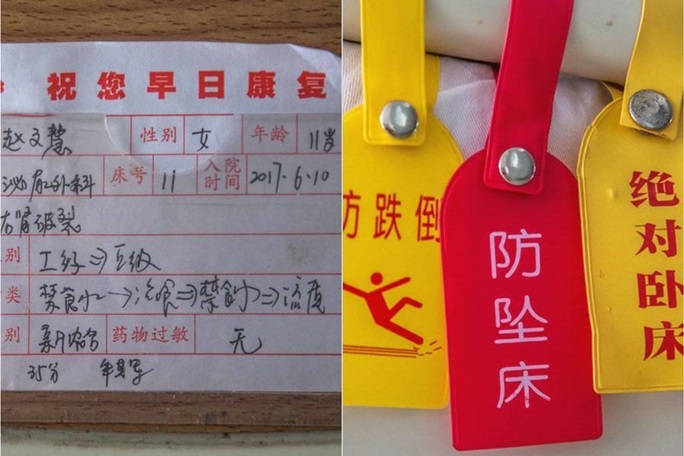 祝您早日康复
赵文慧 性别 女 年龄 11岁
泌尿外科 床号 11 入院时间 2017.6.10
右肾破裂
别 I级⇒II级
类 禁食水→流食⇒禁食水⇒流质
别 新农合 药物过敏 无
35分
防跌倒
防坠床
绝对卧床